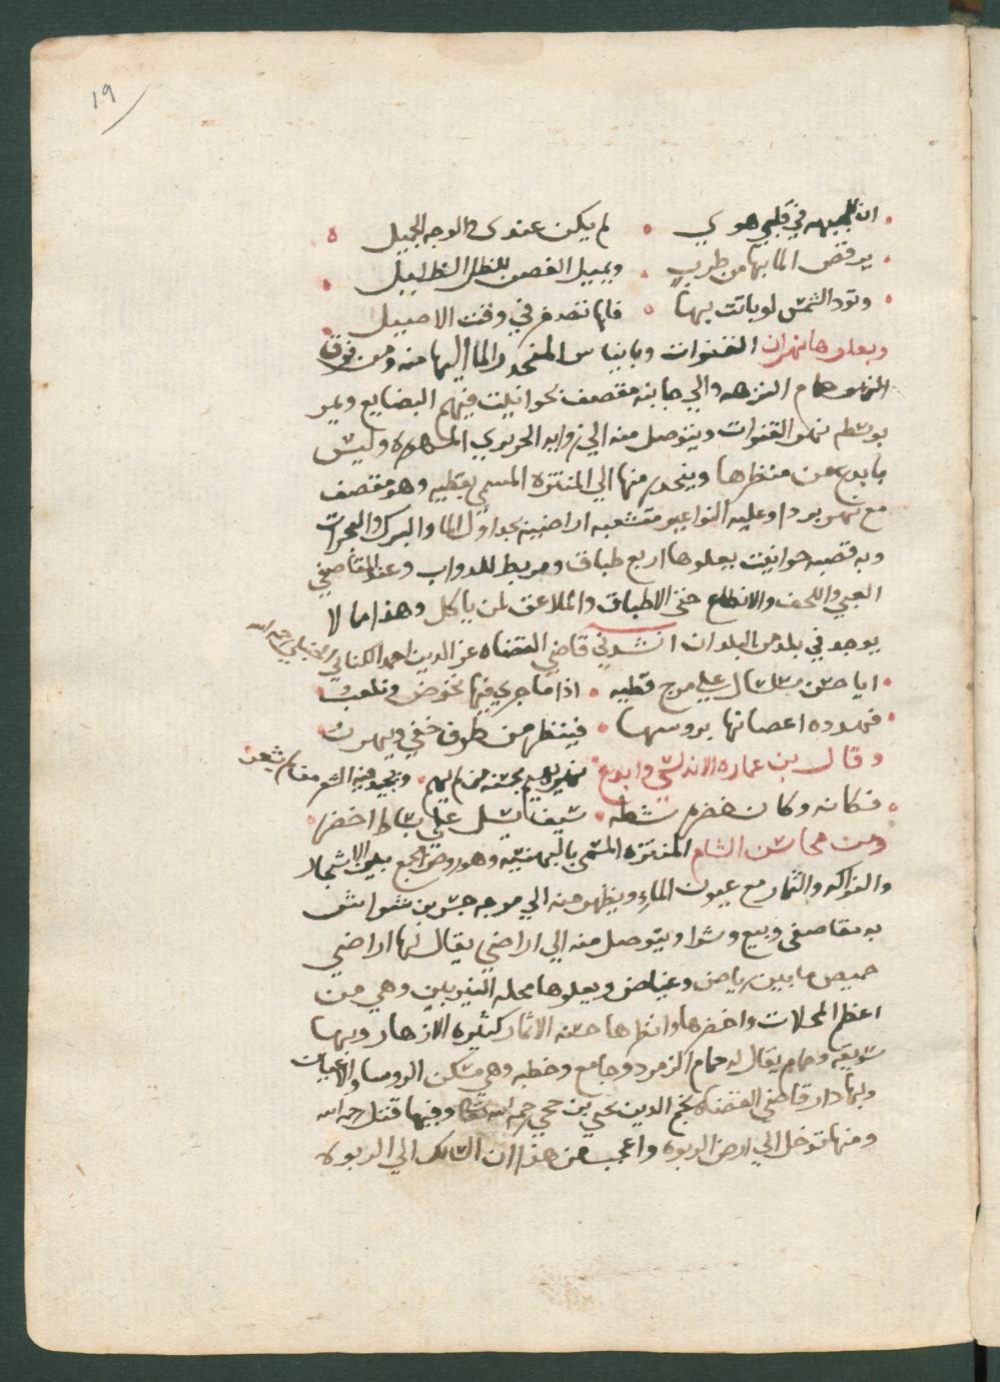 ١٩
ان للجبهه في قلبي هوي ۰ لم يكن عندي للوجه الجميل
يرقص الما بها من طرب ۰ ويميل الغصن للظل الظليل
وتود الشمس لو باتت بها ۰ فلهذا تصفر في وقت الاصيل
ويعلوها نهران القنوات وبانياس المنحدر الما اليها منه ومن فوق
النهر حمام النزهه والي جانبه مقصف بحوانيت فيهم البضايع ويمر
بوسطه نهر القنوات ويتوصل منه الي زوايه الحريري المشهوره وليس
بابدع من منظرها وينحدر منها الي المنتزه المسمي بقطيه وهو مقصف
مع نهر بردا وعليه النواعير متشعبه اراضيه بجداول الما والبرك والبحرات
وبه قصبه حوانيت يعلوها اربع طباق ومربط للدواب وعند المقاصفي
العبي واللحف والانطاع حتي الاطباق والملاعق لمن ياكل وهذا ما لا
يوجد في بلد من البلدان انشدني قاضي القضاه عز الدين احمد الكناني الحنبلي رحمه الله
ايا حسن سلسال علي مرج قطيه ۰ اذا ما جري فيها تخوض وتلعب
فمدوده اغصانها بروسها ۰ فينظر من طرف خفي ويهرب
وقال بن عماره الاندلسي وابدع نهر يهيم بحسنه من لم يهم ۰ ويجيد فيه الشعر من لم يشعر
فكانه وكان خضره شطه ۰ سيف يسل علي بساط اخضر
ومن محاسن الشام المنتزه المسمي بالبهنسيه وهو روض اجمع بين الاشجار
والفواكه والثمار مع عيون الماء ويظهر منه الي مرجه جسر بن شواش
به مقاصفي وبيع وشرا ويتوصل منه الي اراضي يقال لها اراضي
حميص ما بين رياض وغياض ويعلوها محله النيربين وهي من
اعظم المحلات واخضرها وانظرها حسنه الاثمار كثيره الازهار وبها
سويقه وحمام يقال له حمام الزمرد وجامع وخطبه وهي مسكن الروسا والاعيان
وبها دار قاضي القضاه نجم الدين يحيي بن حجي رحمه الله تعالي وفيها قتل رحمه الله
ومنها تتوصل الي ارض الربوه واعجب من هذا ان السالك الي الربوه